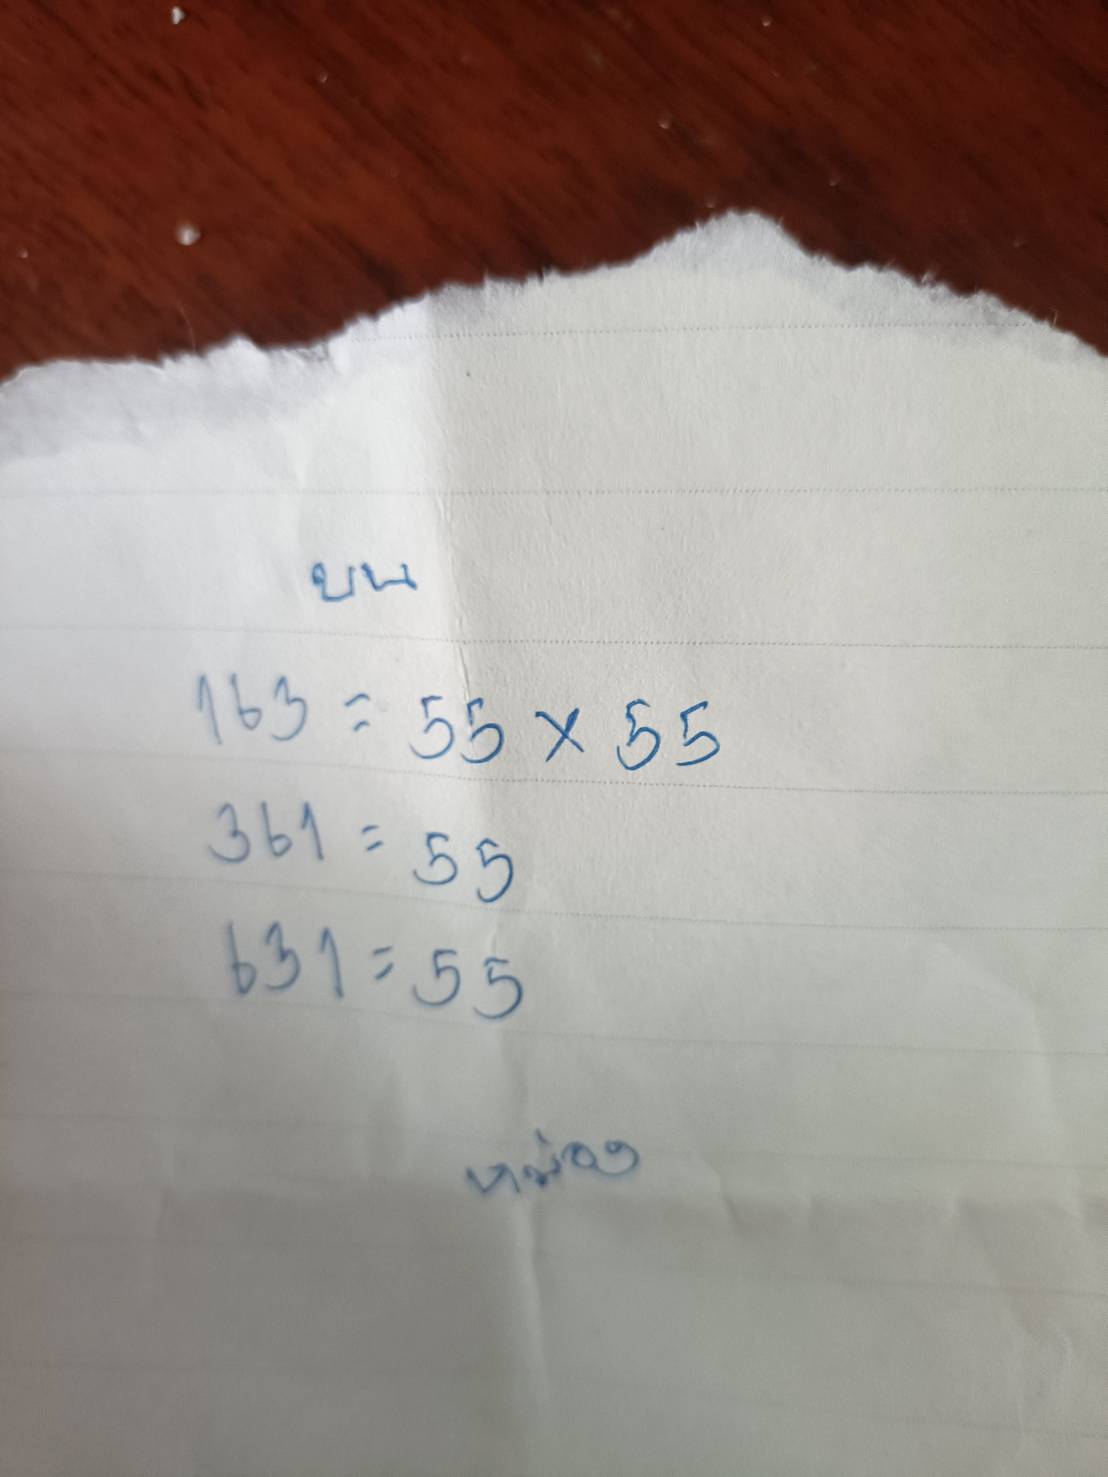 บน
163 = 55 × 55
361 = 55
631 = 55
หม่อง